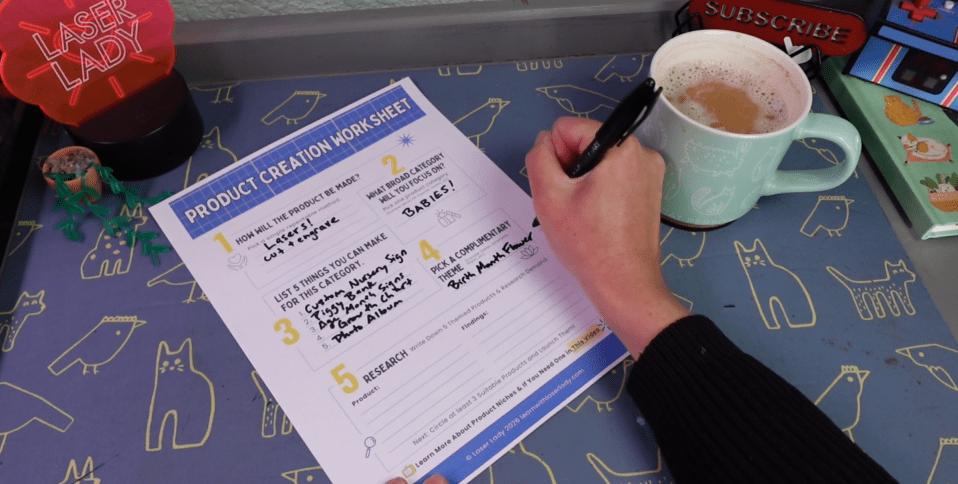 LASER
LADY
SUBSCRIBE
PRODUCT CREATION WORKSHEET
1 HOW WILL THE PRODUCT BE MADE?
Lasers!
cut + engrave
2
WHAT BROAD CATEGORY
WILL YOU FOCUS ON?
BABIES!
3
LIST 5 THINGS YOU CAN MAKE
FOR THIS CATEGORY.
1. Custom Nursery Sign
2. Piggy Bank
3. Age Month Signs
4. Growth Chart
5. Photo Album
4
PICK A COMPLIMENTARY
THEME
Birth Month Flower
5 RESEARCH Write Down 5 Themed Products & Research Demand
Product:
Findings:
Next: Circle at least 3 Suitable Products and Launch Them!
Learn More About Product Niches & If You Need One in This Video
© Laser Lady 2026 learnwithlaserlady.com